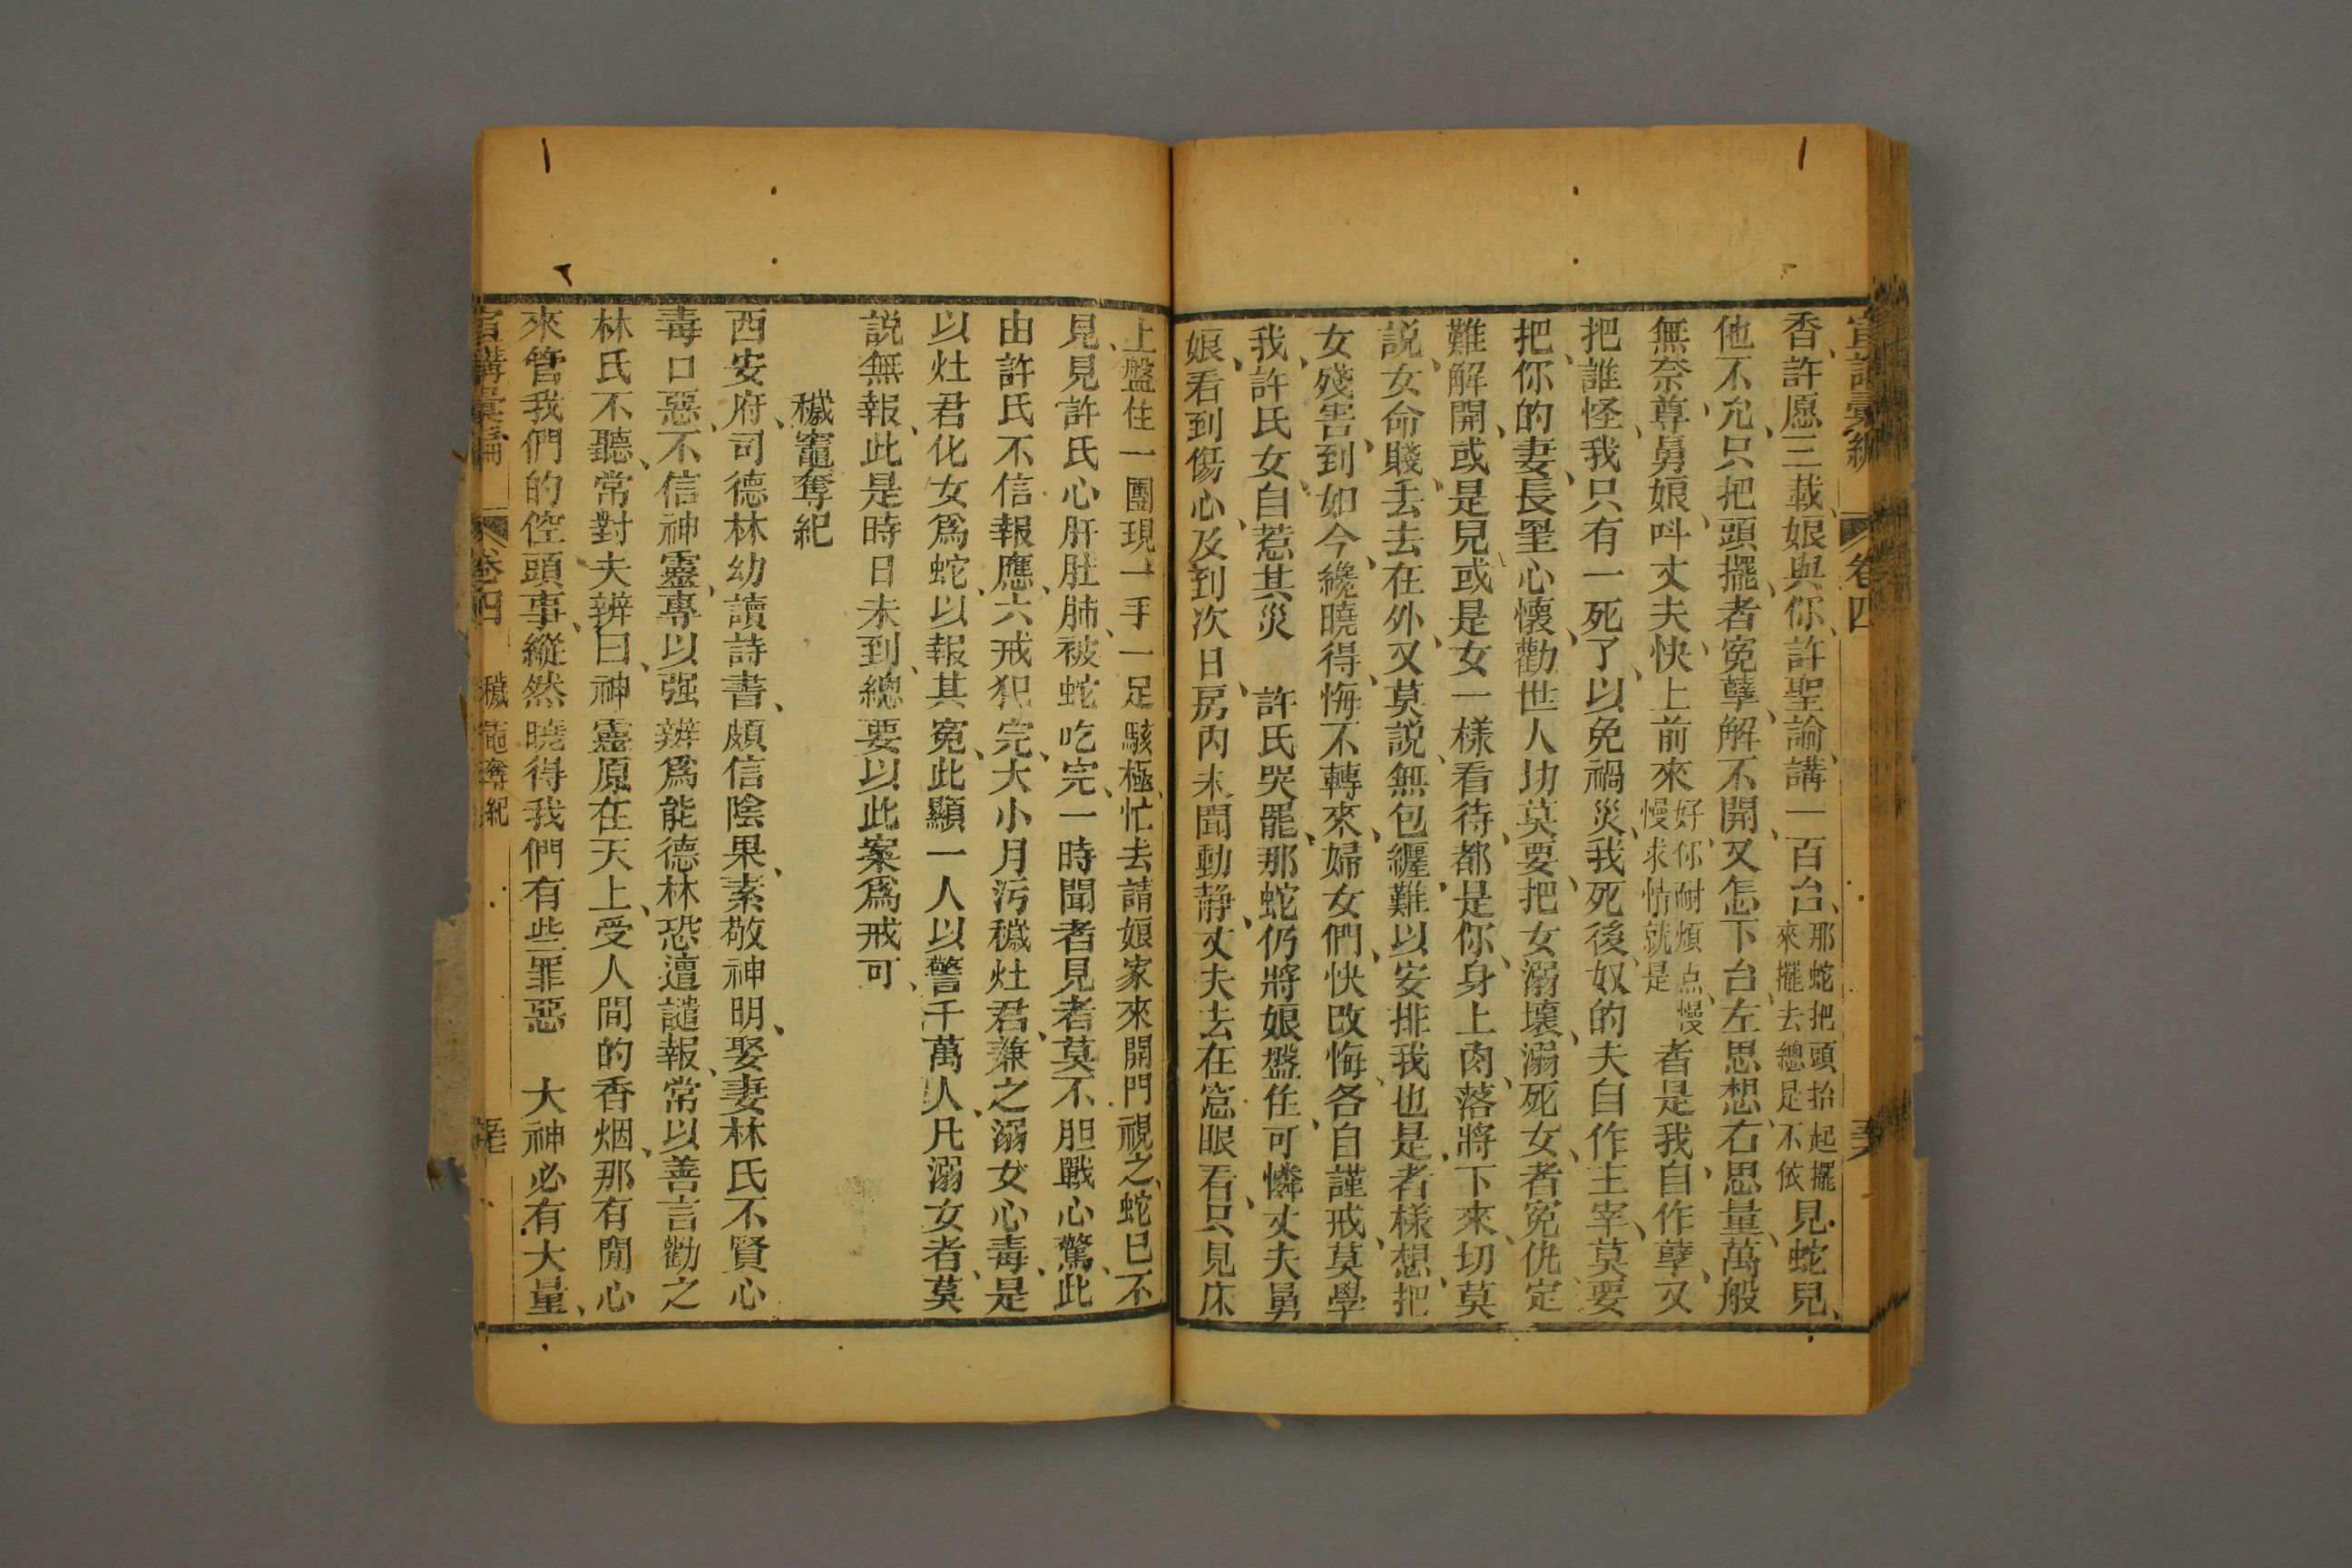 宣講彙編 卷四
香、許愿三載、娘與你、許聖諭、講一百台、那蛇把頭抬起擺來擺去總足不依見蛇兒、
他不允、只把頭擺、者寃孽、解不開、又怎下台、左思想、右思量、萬般
無奈、尊舅娘、呌丈夫、快上前來好你耐煩点、慢慢求情就是者是我、自作孽、又
把誰怪、我只有一死了、以免禍災、我死後、奴的夫自作主宰、莫要
把、你的妻、長罣心懷、勸世人、切莫要、把女溺壞、溺死女、者寃仇定
難解開、或是兒、或是女一樣看待、都是你、身上肉、落將下來、切莫
説、女命賤、丢去在外、又莫説、無包纒、難以安排、我也是、者樣想、把
女殘害、到如今、纔曉得、悔不轉來、婦女們、快改悔、各自謹戒、莫學
我、許氏女、自惹其災　許氏哭罷、那蛇仍將娘盤住、可憐丈夫舅
娘、看到傷心、及到次日、房内未聞動静、丈夫去在窓眼看、只見床
上盤住一團現一手一足駭極、忙去請娘家來開門視之、蛇已不
見、見許氏心肝肚肺、被蛇吃完、一時聞者見者莫不胆戰心驚、此
由許氏不信報應、六戒犯完、大小月污穢灶君、兼之溺女心毒、是
以灶君化女爲蛇、以報其寃、此顯一人以警千萬人、凡溺女者、莫
説無報、此是時日未到、總要以此案爲戒可、
穢竈奪紀
西安府、司德林幼讀詩書、頗信陰果、素敬神明、娶妻林氏不賢心
毒口惡、不信神靈、專以强辨爲能德林恐遭譴報、常以善言勸之
林氏不聽、常對夫辨曰、神靈原在天上、受人間的香烟、那有閒心
來管我們的倥頭事、縱然曉得我們有些罪惡　大神必有大量、
宣講彙編 卷四 穢竈奪紀